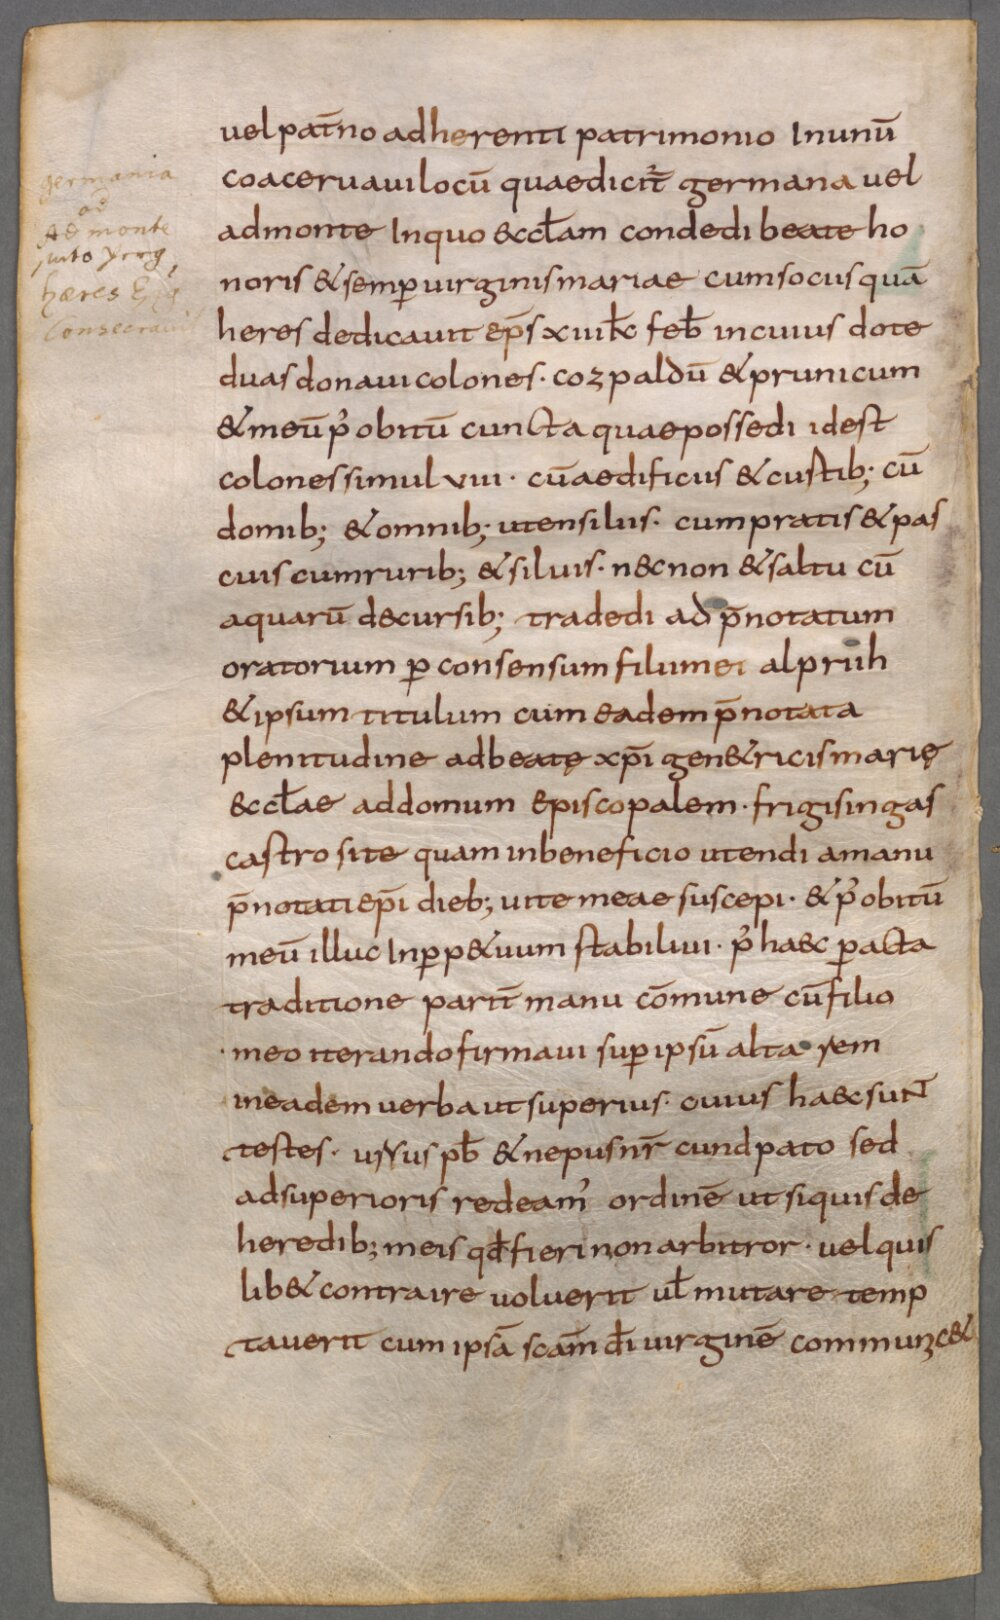 germania
ad
Ad monte
heres Eps
Consecravit
uel pat̄no adherenti patrimonio In unū
coaceruaui locū quae dicit̄ germana uel
admonte In quo &ccl̄am condedi beate ho
noris & semp̲ uirginis mariae cum sociis quā
heres dedicauit ep̄s xiiii kl̄ feb̄ in cuius dote
duas donaui colones · cozpaldū & prunicum
& meū p' obitū cuncta quae possedi idest
colones simul viii · cū aedificiis & custib; cū
domib; & omnib; utensiliis · cum pratis & pas
cuis cum rurib; & siluis · n&c non & saltu cū
aquarū decursib; tradedi ad p̄notatum
oratorium p̲ consensum filii mei alprih
& ipsum titulum cum eadem p̄notata
plenitudine ad beatę xp̄i gen&ricis marię
&ccl̄ae ad domum episcopalem · frigisingas
castro site quam in beneficio utendi a manu
p̄notati ep̄i dieb; uite meae suscepi · & p' obitū
meū illuc In p̲p&uum stabiliui · p' ha&c p̲acta
traditione parit̄ manu cōmune cū filio
meo iterando firmaui sup̲ ipsū altarem
in eadem uerba ut superius · cuius ha&c sunt
testes · ursus pb̄ & nepus nr̄ cundpato sed
ad superioris redeam' ordinē ut siquis de
heredib; meis qd̄ fieri non arbitror · uel quis
lib& contraire uoluerit ul̄ mutare temp
tauerit cum ipsā scām dī uirginē communic&